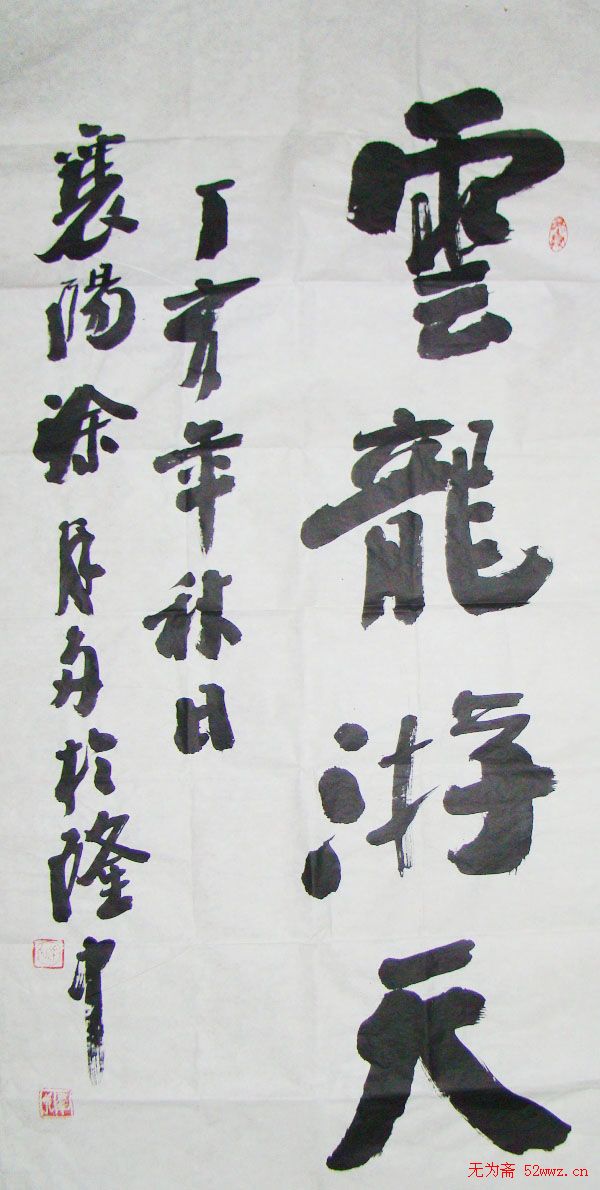 雲龍游天
丁亥年秋日
襄陽涂月舟於隆中
无为斋 52wwz.cn